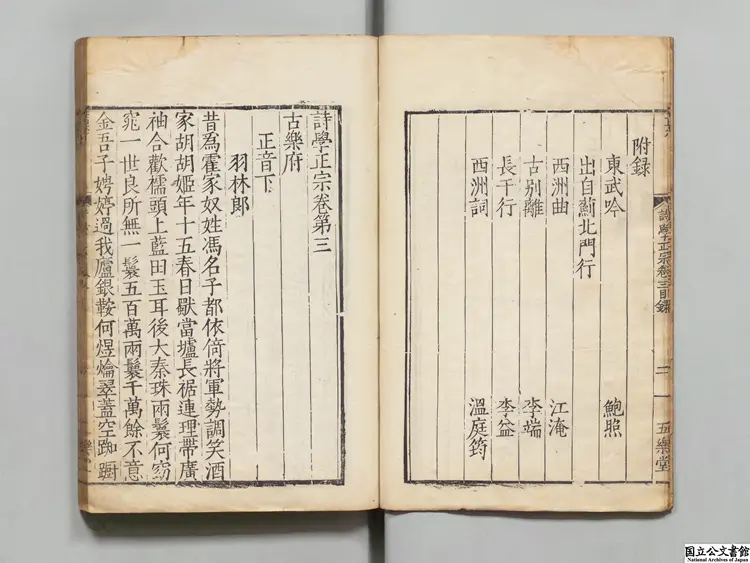 附録
東武吟 鮑照
出自薊北門行
西洲曲 江淹
古別離 李端
長干行 李益
西洲詞 溫庭筠
詩學正宗卷之三目錄 二 五樂堂
詩學正宗卷第三
古樂府
正音下
羽林郎
昔爲霍家奴姓馮名子都依倚將軍勢調笑酒
家胡胡姬年十五春日獸當壚長裾連理帶廣
袖合歡襦頭上藍田玉耳後大秦珠兩鬟何窈
窕一世良所無一鬟五百萬兩鬟千萬餘不意
金吾子娉婷過我廬銀鞍何煜爚翠蓋空踟躕
国立公文書館
National Archives of Japan